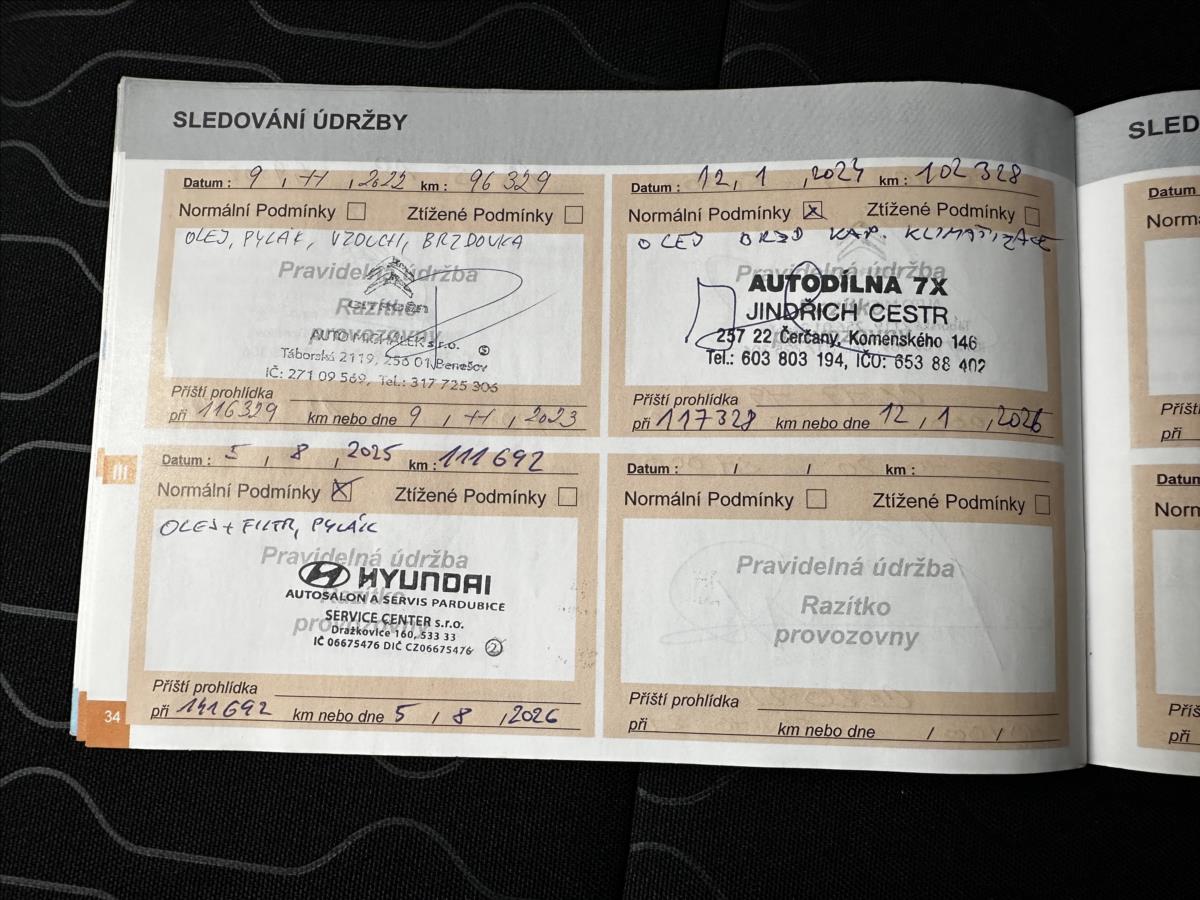 SLEDOVÁNÍ ÚDRŽBY
Datum : 9 , 11 , 2022 km : 96 329
Normální Podmínky Ztížené Podmínky
OLEJ, PYLÁK, VZDUCH, BRZDOVKA
Pravidelná údržba
Razítko
provozovny
CITROËN
AUTO MICHÁLEK s.r.o.
Táborská 2119, 256 01 Benešov
IČ: 271 09 569, Tel.: 317 725 306
Příští prohlídka
při 116329 km nebo dne 9 , 11 , 2023
Datum : 12, 1 , 2024 km : 102 328
Normální Podmínky X Ztížené Podmínky
OLEJ BRZD KAP. KLIMATIZACE
Pravidelná údržba
AUTODÍLNA 7X
JINDŘICH CESTR
257 22 Čerčany, Komenského 146
Tel.: 603 803 194, IČO: 653 88 402
Příští prohlídka
při 117328 km nebo dne 12 , 1 , 2026
Datum : 5 / 8 , 2025 km : 111 692
Normální Podmínky X Ztížené Podmínky
OLEJ + FILTR, PYLÁK
Pravidelná údržba
Razítko
provozovny
HYUNDAI
AUTOSALON A SERVIS PARDUBICE
SERVICE CENTER s.r.o.
Dražkovice 160, 533 33
IČ 06675476 DIČ CZ06675476 2
Příští prohlídka
při 141692 km nebo dne 5 / 8 , 2026
Datum : / / km :
Normální Podmínky Ztížené Podmínky
Pravidelná údržba
Razítko
provozovny
Příští prohlídka
při km nebo dne / /
III
34
SLED
Datum
Normá
Příští
při
Datum
Norm
Příš
při